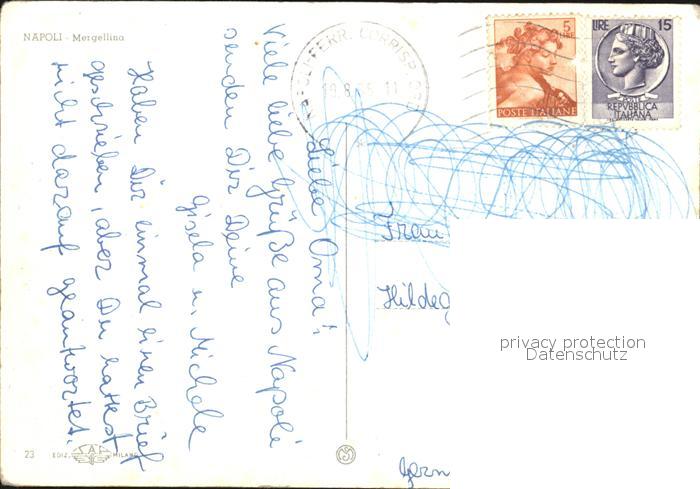 NAPOLI - Mergellina
Liebe Oma!
Viele liebe Grüße aus Napoli
senden Dir Deine
Gisela u. Michele
Haben Dir einmal einen Brief
geschrieben, aber Du hattest
nicht darauf geantwortet.
5
LIRE
POSTE ITALIANE
LIRE 15
POSTE
REPVBBLICA
ITALIANA
FERR. CORRISP.
Frau
privacy protection
Datenschutz
23 EDIZ. MILANO